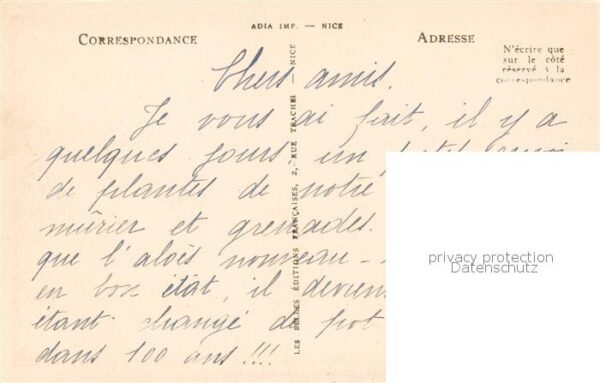 ADIA IMP. — NICE
CORRESPONDANCE
ADRESSE
N'écrire que
sur le côté
réservé à la
correspondance
Chers amis.
Je vous ai fait, il y a
quelques jours un petit envoi
de plantes de notre
mûrier et grenades.
que l'aloès nouveau-
en bon état, il devien
étant changé de pot
dans 100 ans!!!!
LES BELLES ÉDITIONS FRANÇAISES, 2, RUE TRACHEL - NICE
privacy protection
Datenschutz